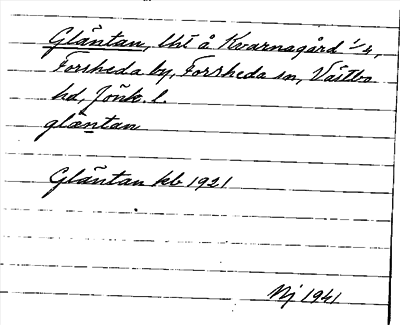 Gläntan, lht å Kvarnagård 1/4,
Forsheda by, Forsheda sn, Västbo
hd, Jönk. l.
gläntan
Gläntan kb 1921
Nj 1941